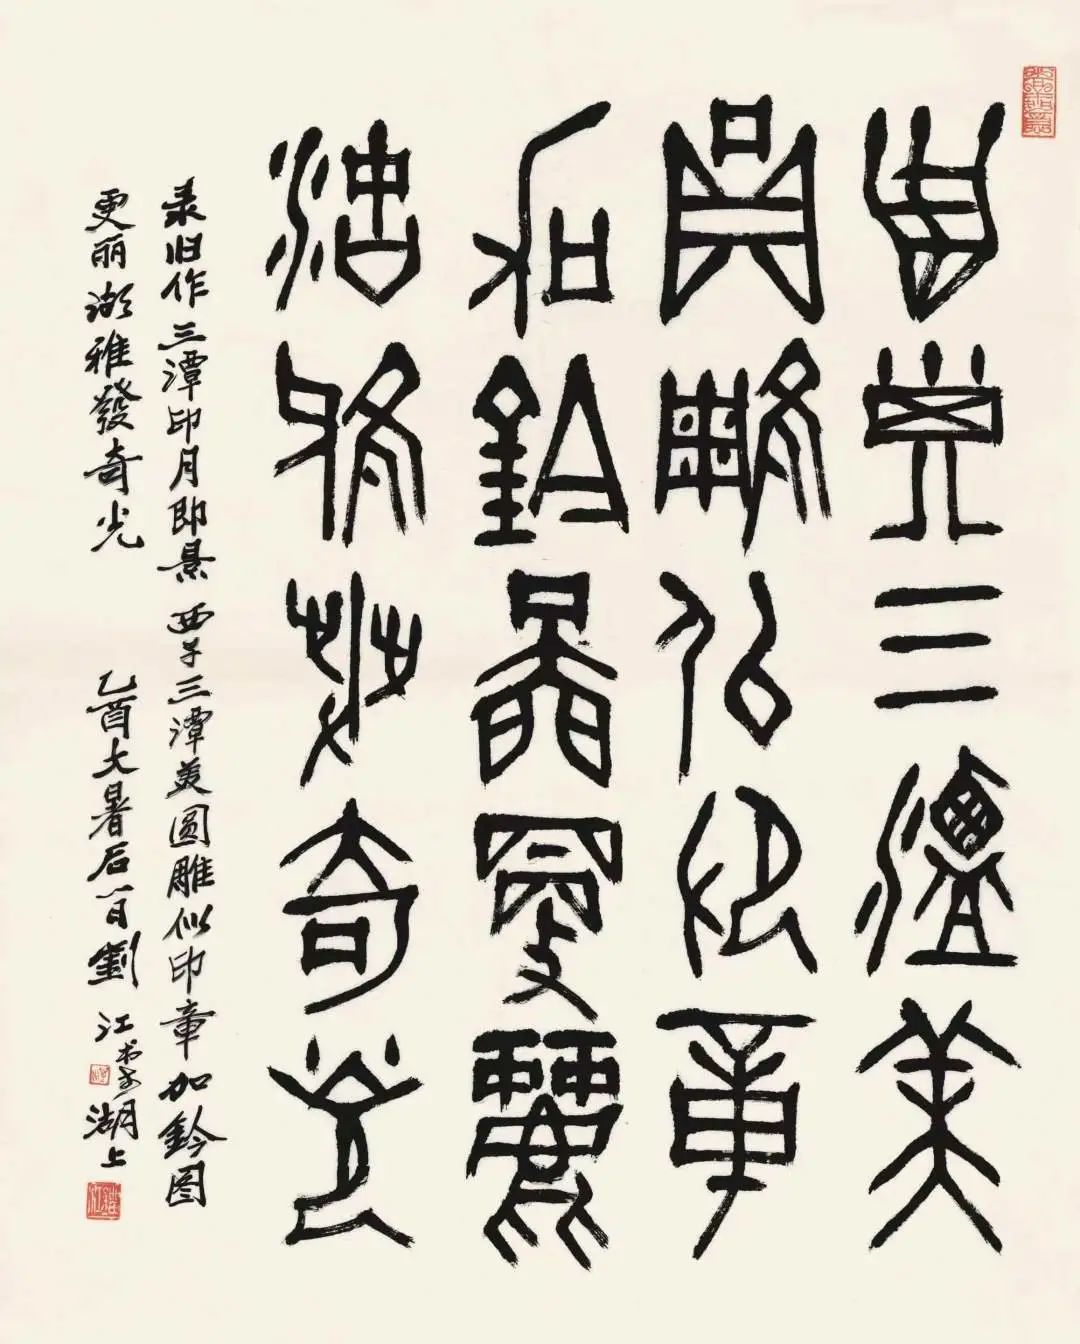 西子三潭美
員雕似印章
加鈐圖更麗
湖雅發奇光
录旧作三潭印月即景 西子三潭美圆雕似印章加鈐图
更丽湖雅發奇光 乙酉大暑后一日劉江书于湖上